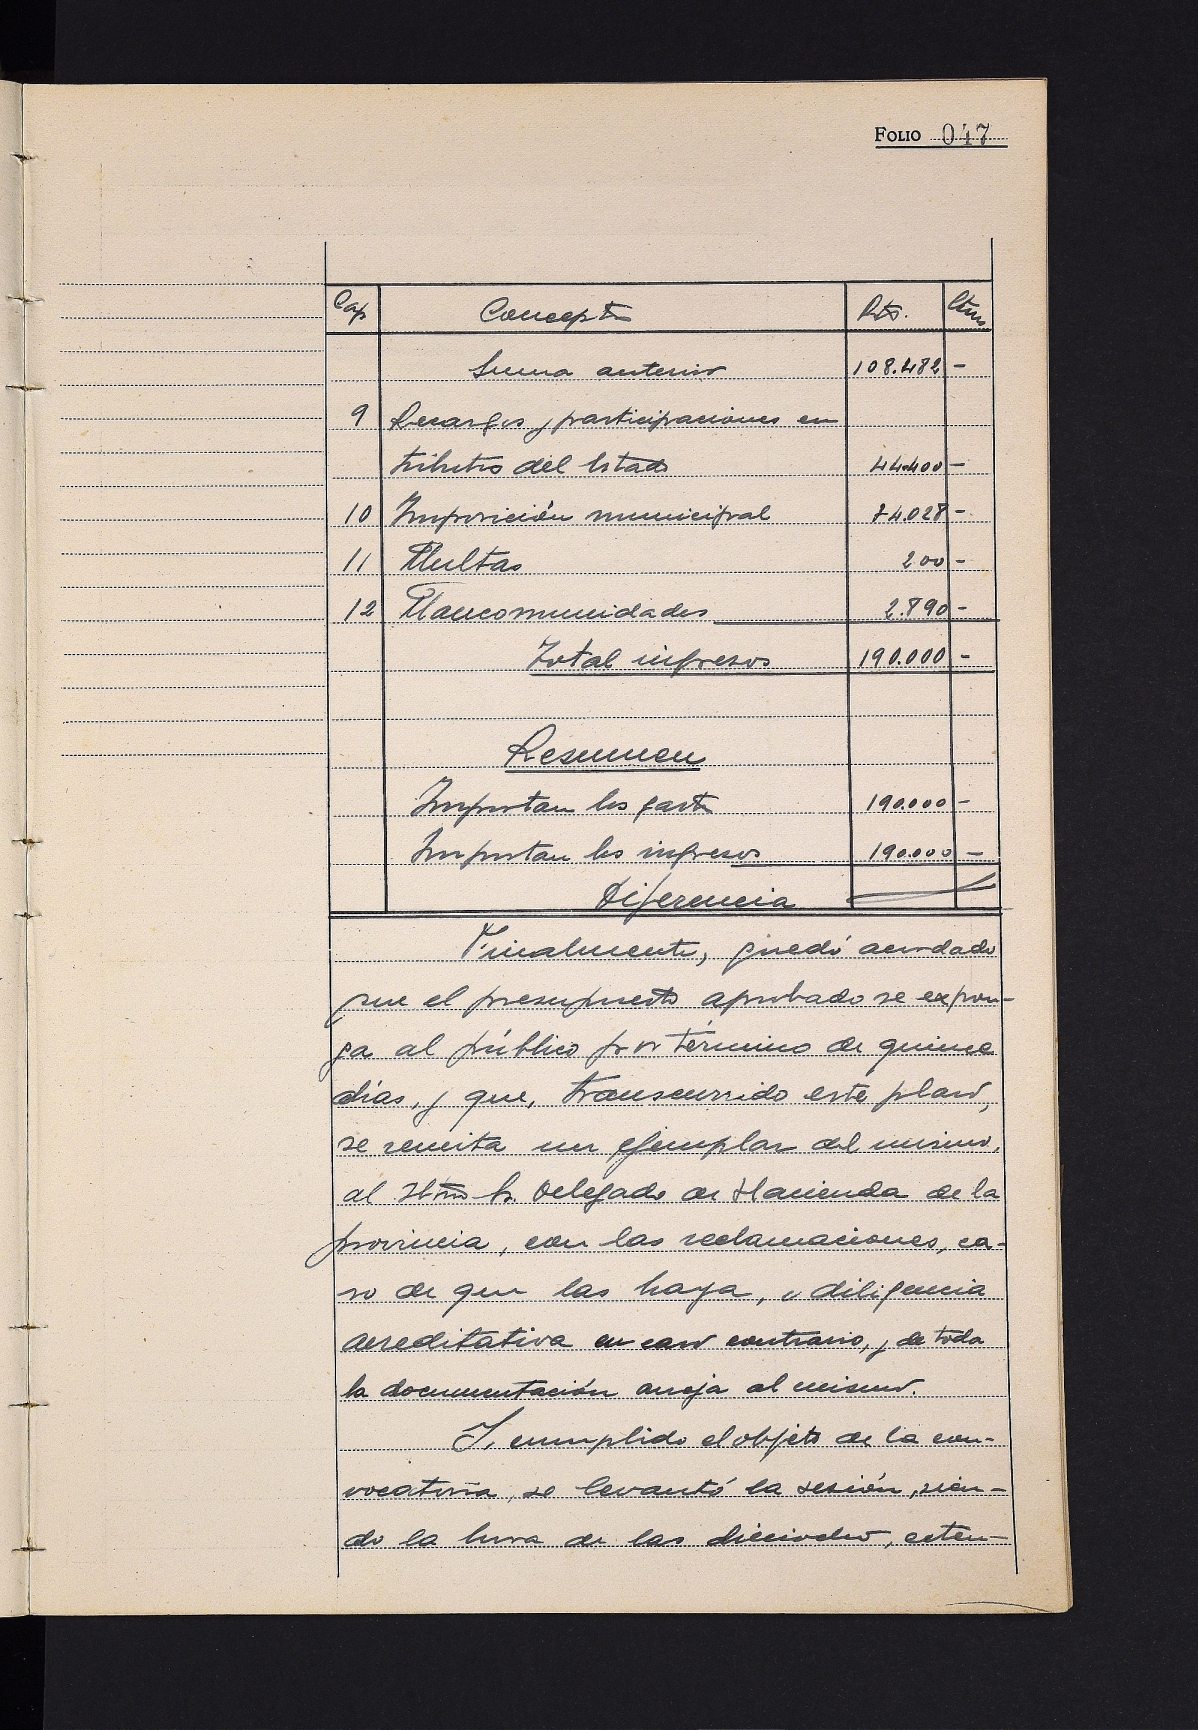 FOLIO 047
Cap Concepto Pts. Ctms
Suma anterior 108.482 -
9 Recargos y participaciones en
tributos del Estado 44.400 -
10 Imposición municipal 34.028 -
11 Multas 200 -
12 Mancomunidades 2.890 -
Total ingresos 190.000 -
Resumen
Importan los gastos 190.000 -
Importan los ingresos 190.000 -
Diferencia
Finalmente, quedó acordado
que el presupuesto aprobado se expon-
ga al público por término de quince
días, y que, transcurrido este plazo,
se remita un ejemplar del mismo,
al Iltmo Sr. Delegado de Hacienda de la
provincia, con las reclamaciones, ca-
so de que las haya, o diligencia
acreditativa en caso contrario, y de toda
la documentación aneja al mismo.
Y, cumplido el objeto de la con-
vocatoria, se levantó la sesión, sien-
do la hora de las dieciocho, exten-